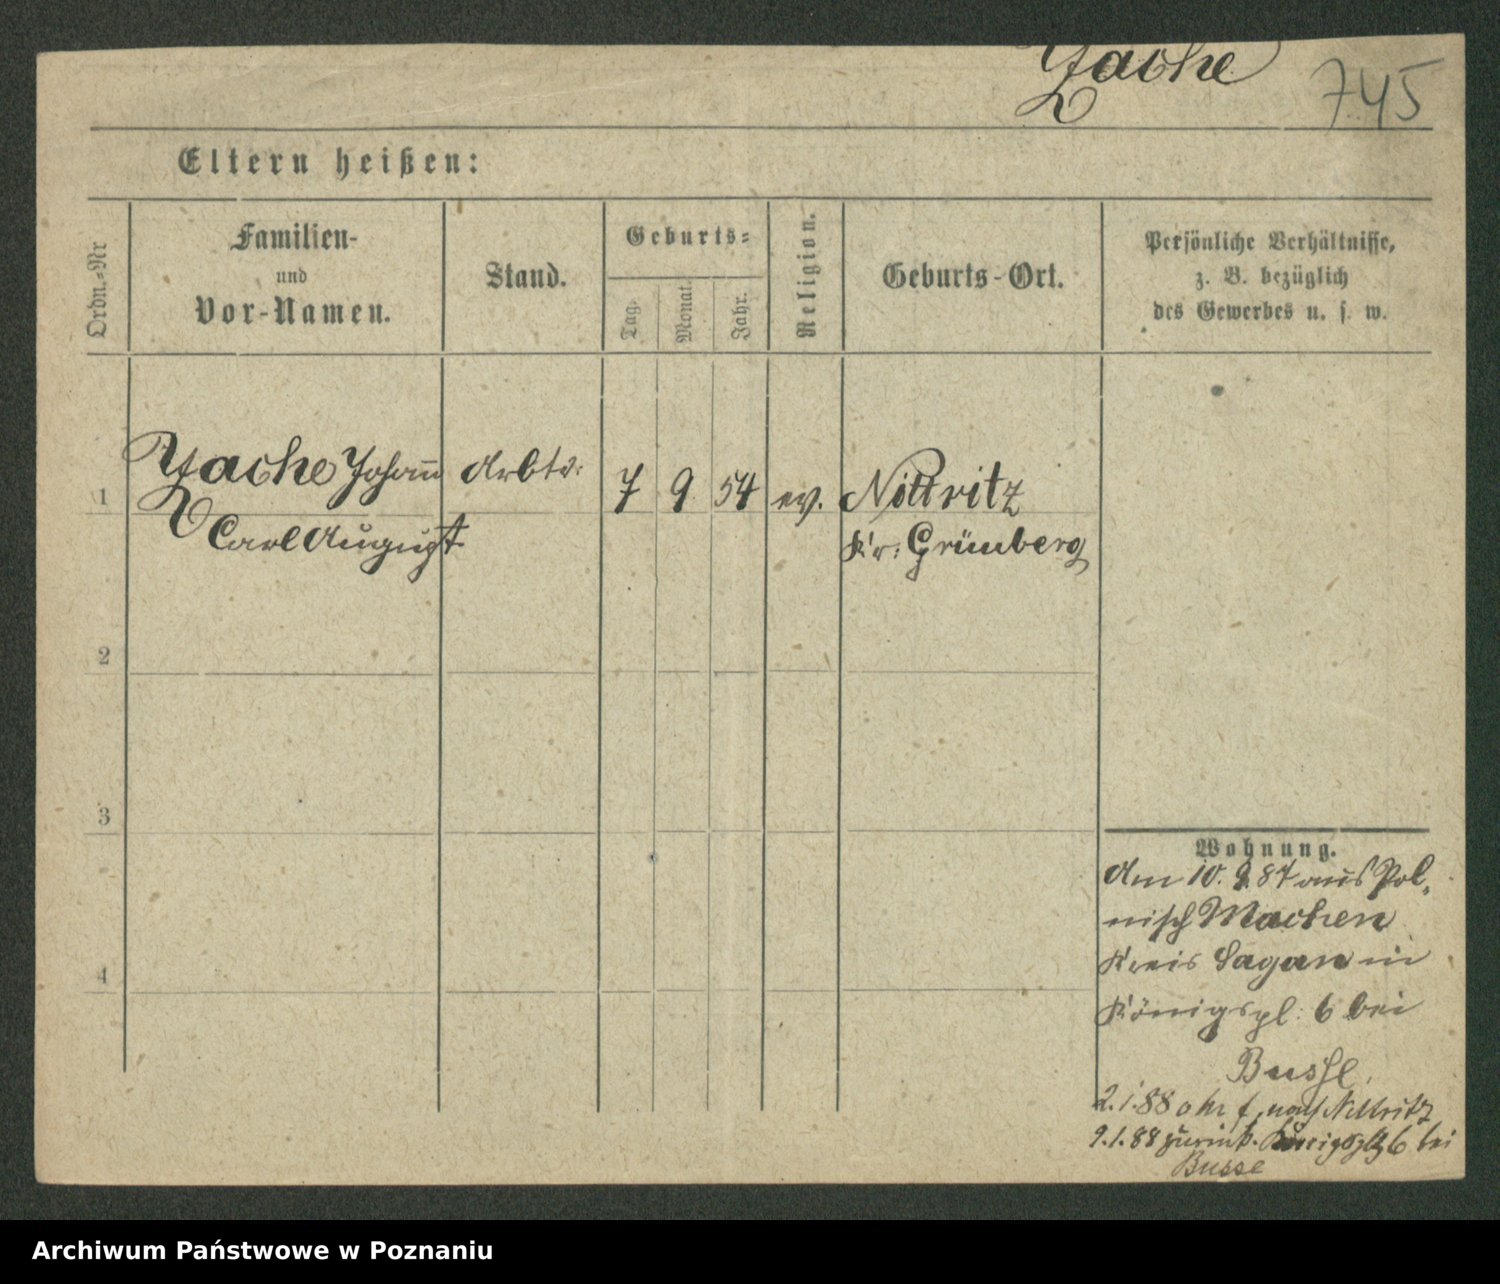 Zache 745
Eltern heißen:
Ordn.-Nr
Familien-
und
Vor-Namen.
Stand.
Geburts-
Tag.
Monat.
Jahr.
Religion.
Geburts-Ort.
Persönliche Verhältnisse,
z. B. bezüglich
des Gewerbes u. s. w.
1 Zache Johann Arbtr: 7 9 54 ev. Nittritz
Carl August Kr: Grünberg
2
3
4
Wohnung.
Am 10. 9. 87 aus Pol,
nisch Machen
Kreis Sagan in
Königspl: 6 bei
Busse,
2.1.88 nach Nittritz
9.1.88 zurück. Königsplz 6 bei
Busse
Archiwum Państwowe w Poznaniu